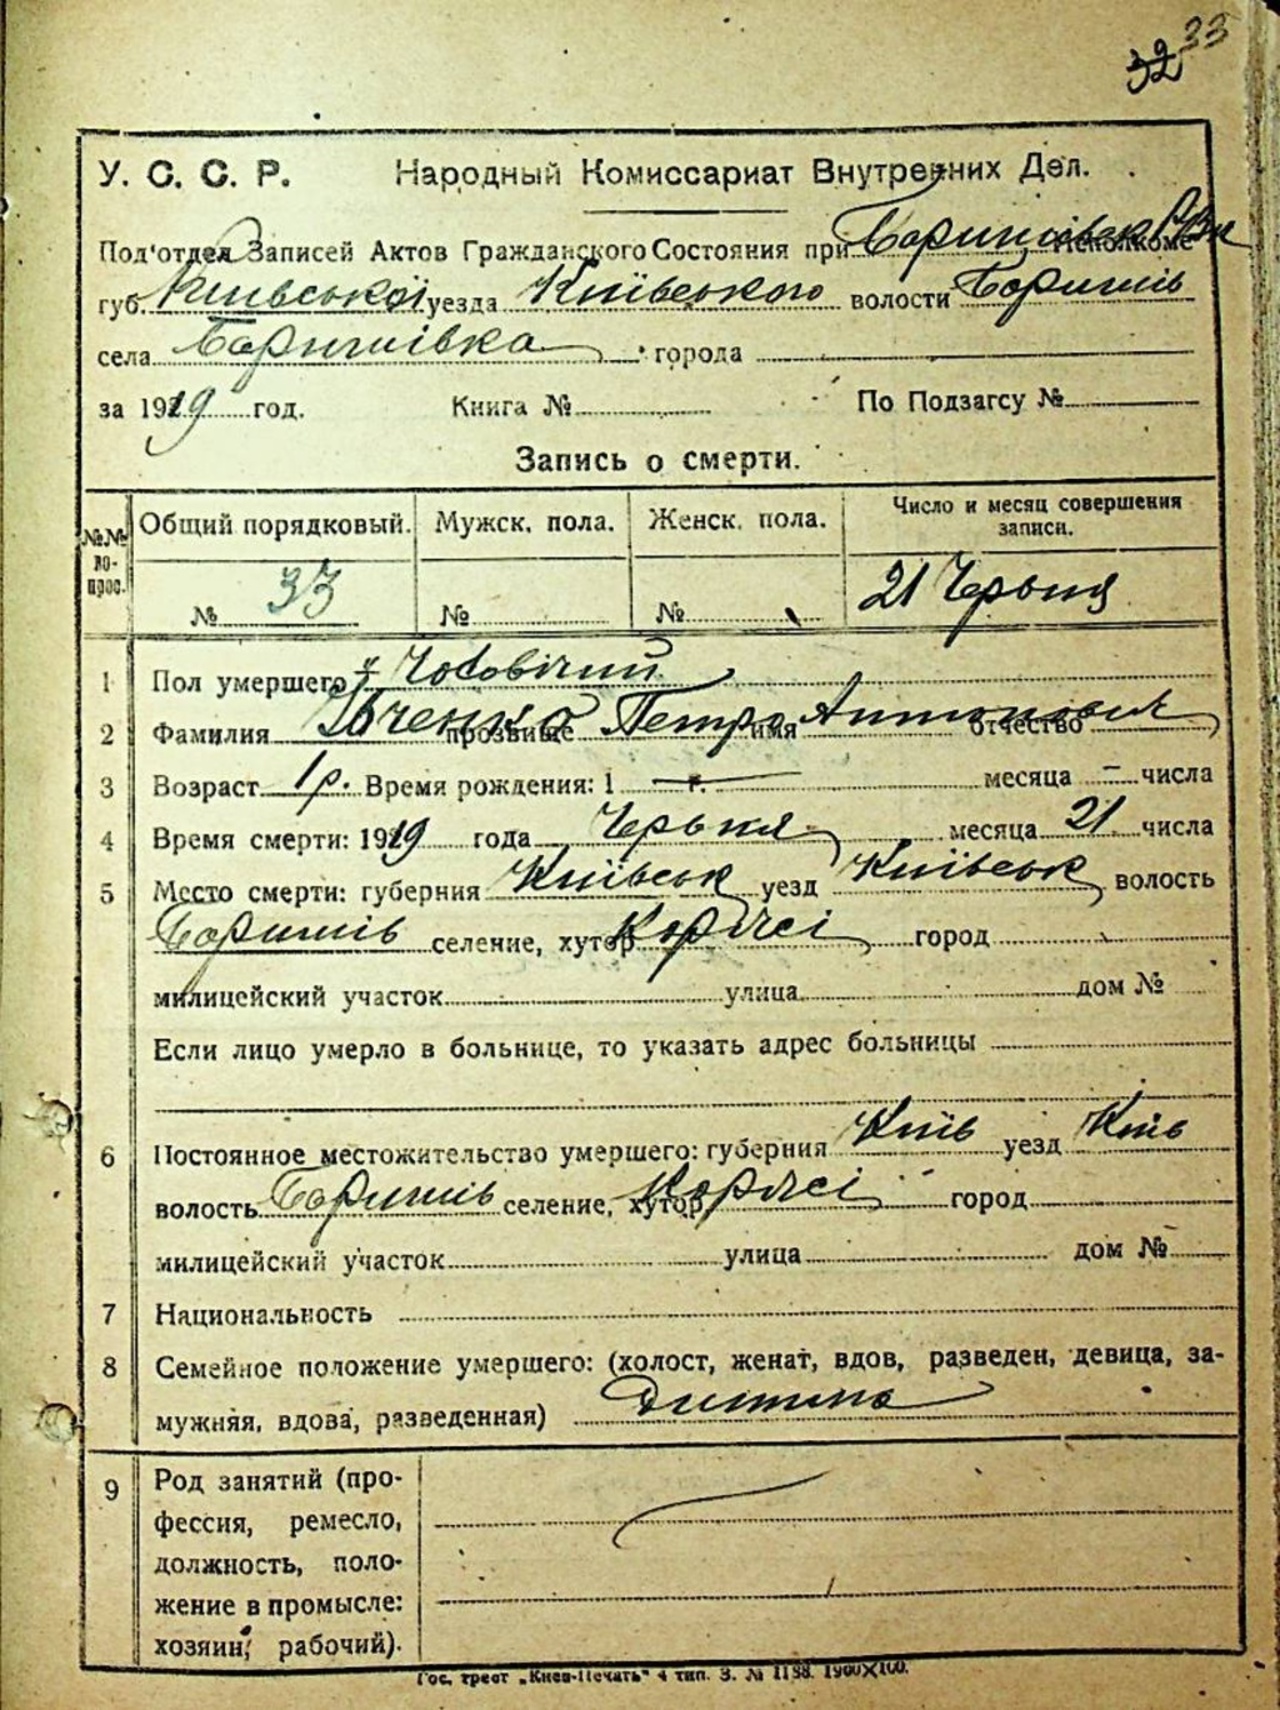 33
32
У. С. С. Р. Народный Комиссариат Внутренних Дел.
Под'отдел Записей Актов Гражданского Состояния при Баришівск Исполкоме
губ. Київської уезда Київського волости Баришів
села Баришівка города
за 1919 год. Книга № По Подзагсу №
Запись о смерти.
№№ во- прос. Общий порядковый. Мужск. пола. Женск. пола. Число и месяц совершения записи.
№ 33 № № 21 Червня
1 Пол умершего Чоловічий
2 Фамилия Івченко прозвище Петро имя Антонович отчество
3 Возраст 1 р. Время рождения: 1 — г. месяца — числа
4 Время смерти: 1919 года Червня месяца 21 числа
5 Место смерти: губерния Київськ уезд Київськ волость
Баришів селение, хутор Коржі город
милицейский участок улица дом №
Если лицо умерло в больнице, то указать адрес больницы
6 Постоянное местожительство умершего: губерния Київ уезд Київ
волость Баришів селение, хутор Коржі город
милицейский участок улица дом №
7 Национальность
8 Семейное положение умершего: (холост, женат, вдов, разведен, девица, за-
мужняя, вдова, разведенная) Дитина
9 Род занятий (про-
фессия, ремесло,
должность, поло-
жение в промысле:
хозяин, рабочий).
Гос. трест „Киев-Печать" 4 тип. З. № 1188. 1900X100.